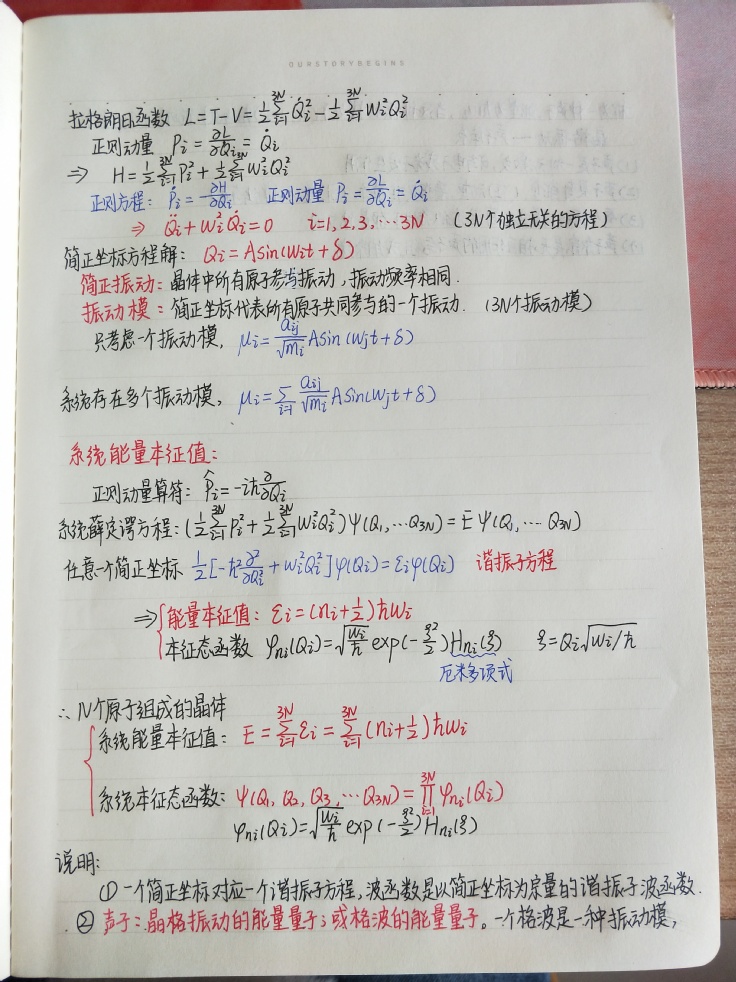 OURSTORYBEGINS
拉格朗日函数 L=T-V=½∑_{i=1}^{3N}Q̇ᵢ²-½∑_{i=1}^{3N}Wᵢ²Qᵢ²
正则动量 Pᵢ=∂L/∂Q̇ᵢ=Q̇ᵢ
⇒ H=½∑_{i=1}^{3N}Pᵢ²+½∑_{i=1}^{3N}Wᵢ²Qᵢ²
正则方程: Ṗᵢ=∂H/∂Qᵢ 正则动量 Pᵢ=∂L/∂Q̇ᵢ=Q̇ᵢ
⇒ Q̈ᵢ+Wᵢ²Q̇ᵢ=0 i=1,2,3,…3N (3N个独立无关的方程)
简正坐标方程解: Qᵢ=Asin(Wᵢt+δ)
简正振动: 晶体中所有原子参与振动,振动频率相同.
振动模: 简正坐标代表所有原子共同参与的一个振动. (3N个振动模)
只考虑一个振动模, μᵢ=aᵢⱼ/√mᵢ Asin(Wⱼt+δ)
系统存在多个振动模, μᵢ=∑_{i=1} aᵢⱼ/√mᵢ Asin(Wⱼt+δ)
系统能量本征值:
正则动量算符: P̂ᵢ=-iħ∂/∂Qᵢ
系统薛定谔方程: (½∑_{i=1}^{3N}Pᵢ²+½∑_{i=1}^{3N}Wᵢ²Qᵢ²)Ψ(Q₁,…Q₃ₙ)=EΨ(Q₁,…Q₃ₙ)
任意一个简正坐标 ½[-ħ²∂²/∂Qᵢ²+Wᵢ²Qᵢ²]φ(Qᵢ)=εᵢφ(Qᵢ) 谐振子方程
⇒{能量本征值: εᵢ=(nᵢ+½)ħWᵢ
本征态函数 φₙᵢ(Qᵢ)=√(Wᵢ/ħ) exp(-ξ²/2)Hₙᵢ(ξ) ξ=Qᵢ√(Wᵢ/ħ)
厄米多项式
∴ N个原子组成的晶体
{系统能量本征值: E=∑_{i=1}^{3N}εᵢ=∑_{i=1}^{3N}(nᵢ+½)ħWᵢ
系统本征态函数: Ψ(Q₁,Q₂,Q₃,…Q₃ₙ)=∏_{i=1}^{3N}φₙᵢ(Qᵢ)
φₙᵢ(Qᵢ)=√(Wᵢ/ħ) exp(-ξ²/2)Hₙᵢ(ξ)
说明:
① 一个简正坐标对应一个谐振子方程,波函数是以简正坐标为宗量的谐振子波函数.
② 声子:晶格振动的能量量子;或格波的能量量子。一个格波是一种振动模,